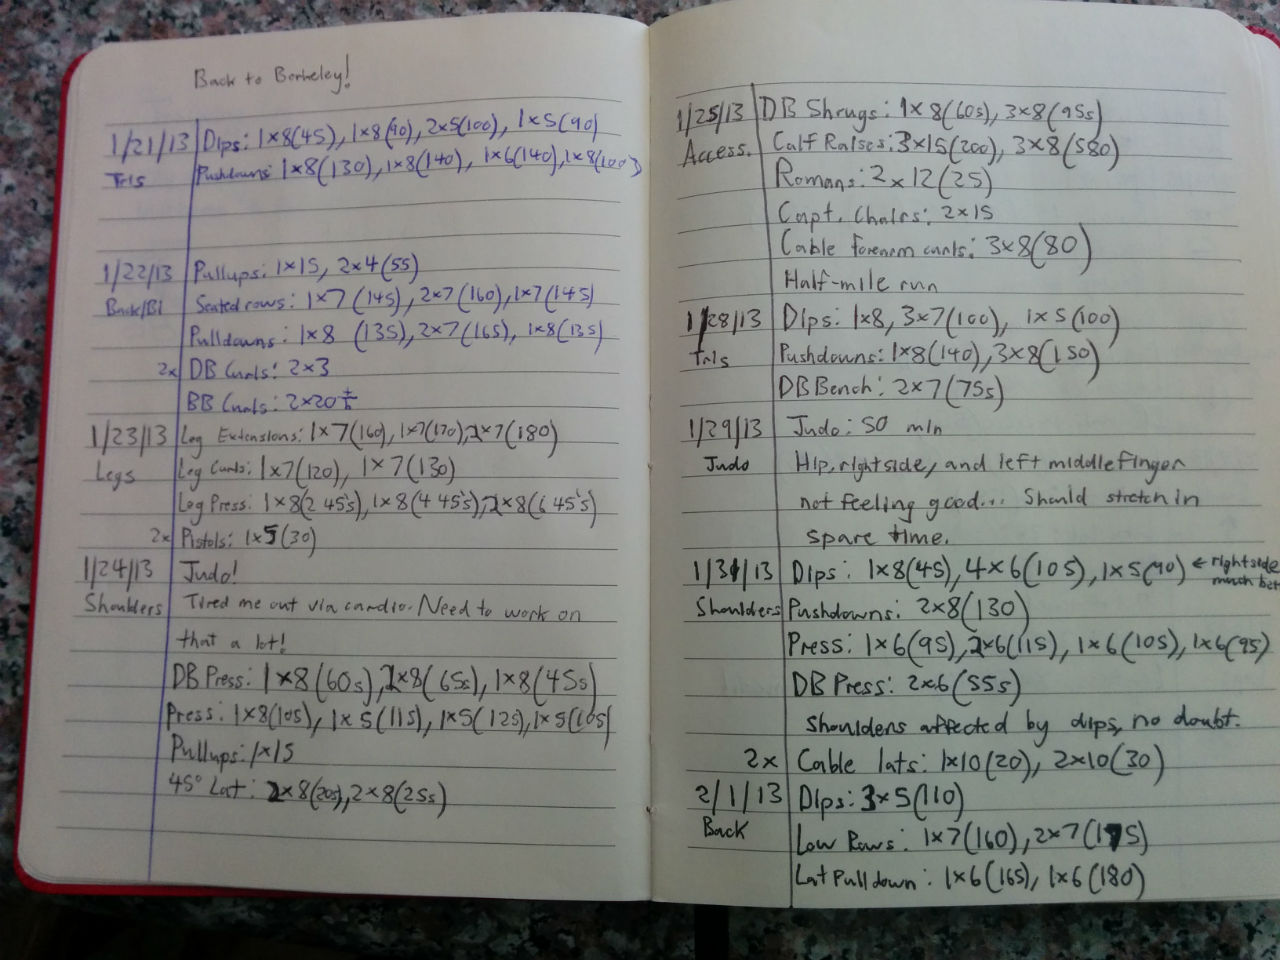 Back to Berkeley!
1/21/13 Dips: 1x8(45), 1x8(90), 2x5(100), 1x5(90)
Tris Pushdowns: 1x8(130), 1x8(140), 1x6(140), 1x8(100)
1/22/13 Pullups: 1x15, 2x4(55)
Back/Bi Seated rows: 1x7(145), 2x7(160), 1x7(145)
Pulldowns: 1x8 (135), 2x7(165), 1x8(135)
2x DB Curls: 2x3
BB Curls: 2x20
1/23/13 Leg Extensions: 1x7(160), 1x7(170), 2x7(180)
Legs Leg Curls: 1x7(120), 1x7(130)
Leg Press: 1x8(2 45's), 1x8(4 45's), 2x8(6 45's)
2x Pistols: 1x5(30)
1/24/13 Judo!
Shoulders Tired me out via cardio. Need to work on
that a lot!
DB Press: 1x8(60s), 2x8(65s), 1x8(45s)
Press: 1x8(105), 1x5(115), 1x5(125), 1x5(105)
Pullups: 1x15
45° Lat: 2x8(20s), 2x8(25s)
1/25/13 DB Shrugs: 1x8(60s), 3x8(95s)
Access. Calf Raises: 3x15(200), 3x8(580)
Romans: 2x12(25)
Capt. Chairs: 2x15
Cable forearm curls: 3x8(80)
Half-mile run
1/28/13 Dips: 1x8, 3x7(100), 1x5(100)
Tris Pushdowns: 1x8(140), 3x8(150)
DB Bench: 2x7(75s)
1/29/13 Judo: 50 min
Judo Hip, right side, and left middle finger
not feeling good... Should stretch in
spare time.
1/31/13 Dips: 1x8(45), 4x6(105), 1x5(90) ← right side
much
Shoulders Pushdowns: 2x8(130)
Press: 1x6(95), 2x6(115), 1x6(105), 1x6(95)
DB Press: 2x6(55s)
Shoulders affected by dips, no doubt.
2x Cable lats: 1x10(20), 2x10(30)
2/1/13 Dips: 3x5(110)
Back Low Rows: 1x7(160), 2x7(175)
Lat Pulldown: 1x6(165), 1x6(180)